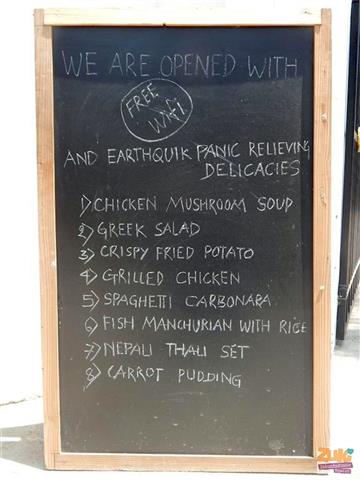 WE ARE OPENED WITH
FREE
WiFi
AND EARTHQUIK PANIC RELIEVING
DELICACIES
1) CHICKEN MUSHROOM SOUP
2) GREEK SALAD
3) CRISPY FRIED POTATO
4) GRILLED CHICKEN
5) SPAGHETTI CARBONARA
6) FISH MANCHURIAN WITH RICE
7) NEPALI THALI SET
8) CARROT PUDDING